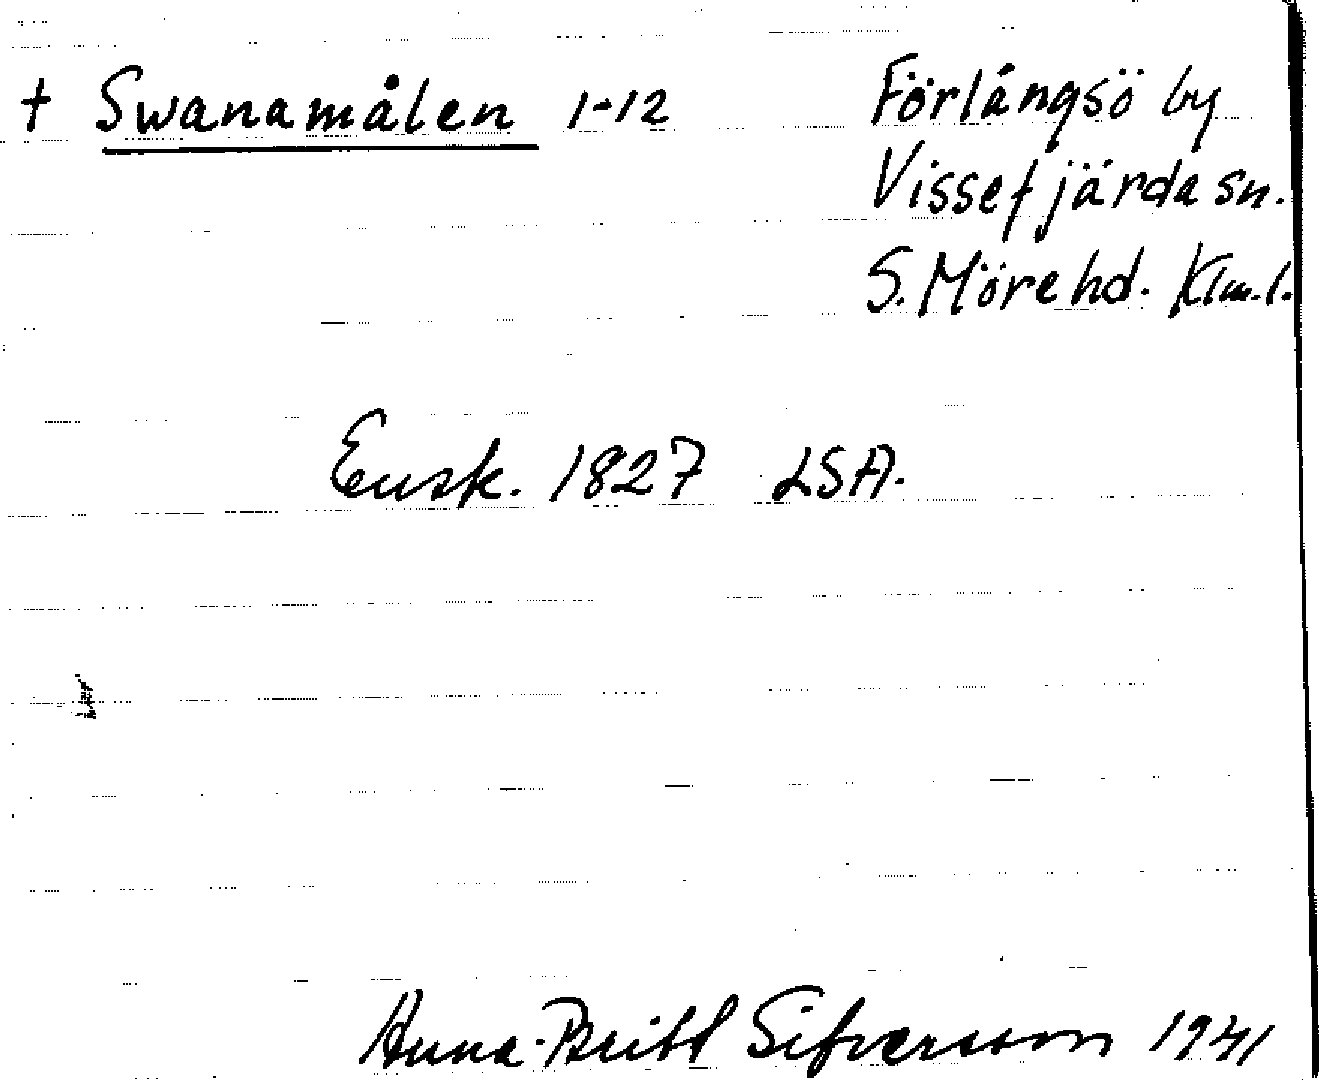 † Swanamålen 1-12
Förlångsö by
Vissefjärda sn.
S. Möre hd. Klm.l.
Ensk. 1827 LSA.
Anna-Britt Sifversson 1941